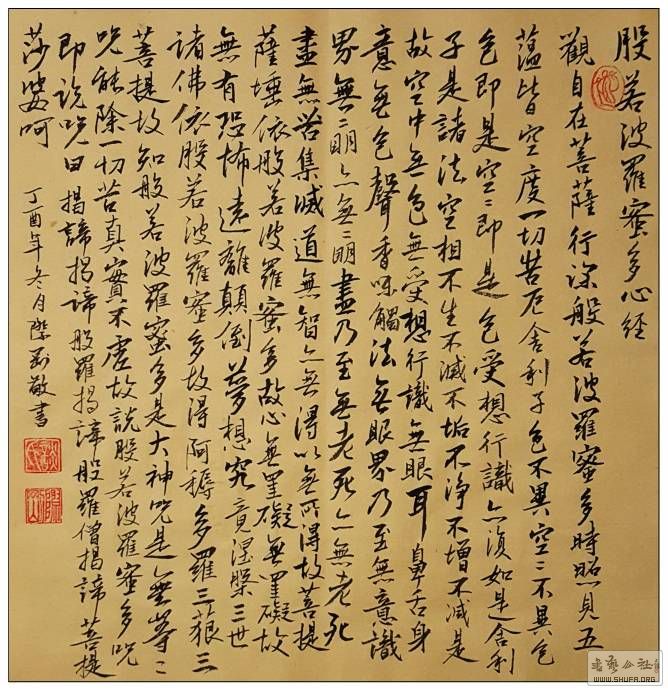 般若波羅蜜多心經
觀自在菩薩行深般若波羅蜜多時照見五
蘊皆空度一切苦厄舍利子色不異空〻不異色
色即是空〻即是色受想行識亦復如是舍利
子是諸法空相不生不滅不垢不淨不增不減是
故空中無色無受想行識無眼耳鼻舌身
意無色聲香味觸法無眼界乃至無意識
界無〻明亦無〻明盡乃至無老死亦無老死
盡無苦集滅道無智亦無得以無所得故菩提
薩埵依般若波羅蜜多故心無罣礙無罣礙故
無有恐怖遠離顛倒夢想究竟涅槃三世
諸佛依般若波羅蜜多故得阿耨多羅三藐三
菩提故知般若波羅蜜多是大神咒是無等〻
咒能除一切苦真實不虛故說般若波羅蜜多咒
即說咒曰揭諦揭諦般羅揭諦般羅僧揭諦菩提
莎婆呵
丁酉年冬月敬書
書藝公社
WWW.SHUFA.ORG